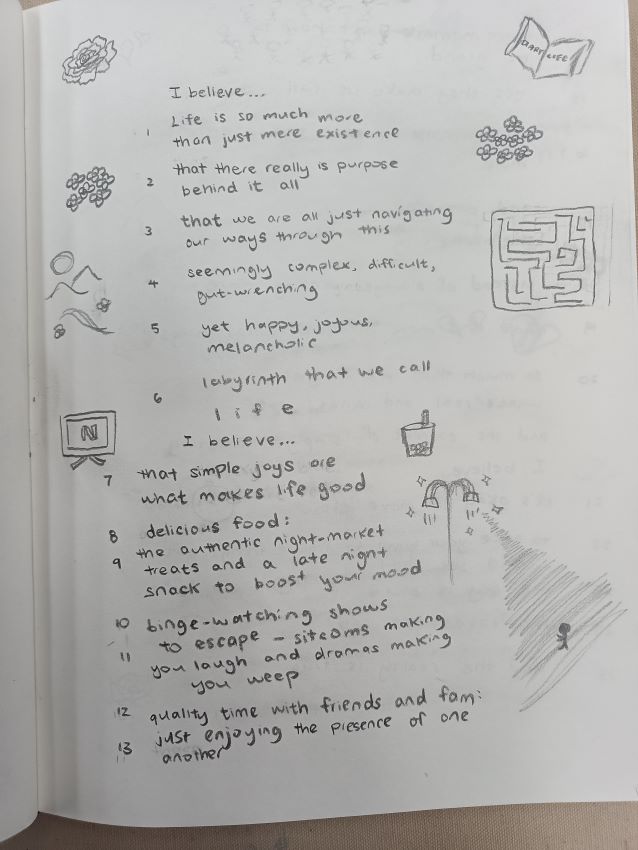 DIARY LIFE
I believe...
1 Life is so much more
than just mere existence
2 that there really is purpose
behind it all
3 that we are all just navigating
our ways through this
4 seemingly complex, difficult,
gut-wrenching
5 yet happy, joyous,
melancholic
6 labyrinth that we call
life
I believe...
N
7 that simple joys are
what makes life good
8 delicious food:
9 the authentic night-market
treats and a late night
snack to boost your mood
10 binge-watching shows
to escape - sitcoms making
11 you laugh and dramas making
you weep
12 quality time with friends and fam:
13 just enjoying the presence of one
another